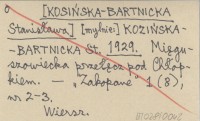 [KOSIŃSKA-BARTNICKA
Stanisława] [mylnie:] KOZIŃSKA-
-BARTNICKA St. 1929. Mięgu-
szowiecka przełęcz pod Chłop-
kiem. — „Zakopane" 1 (8),
nr 2-3.
Wiersz.